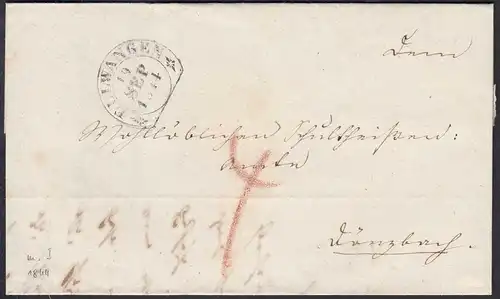 ELLWANGEN
19
SEP
1844
Dem
Wohllöblichen Schultheißen:
Amte
Dörzbach.
1844